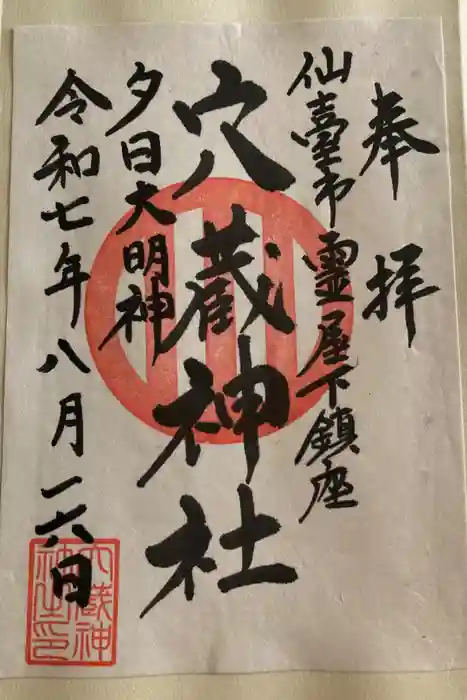 奉拝
仙臺市霊屋下鎮座
穴蔵神社
夕日大明神
令和七年八月一六日
穴蔵神社印